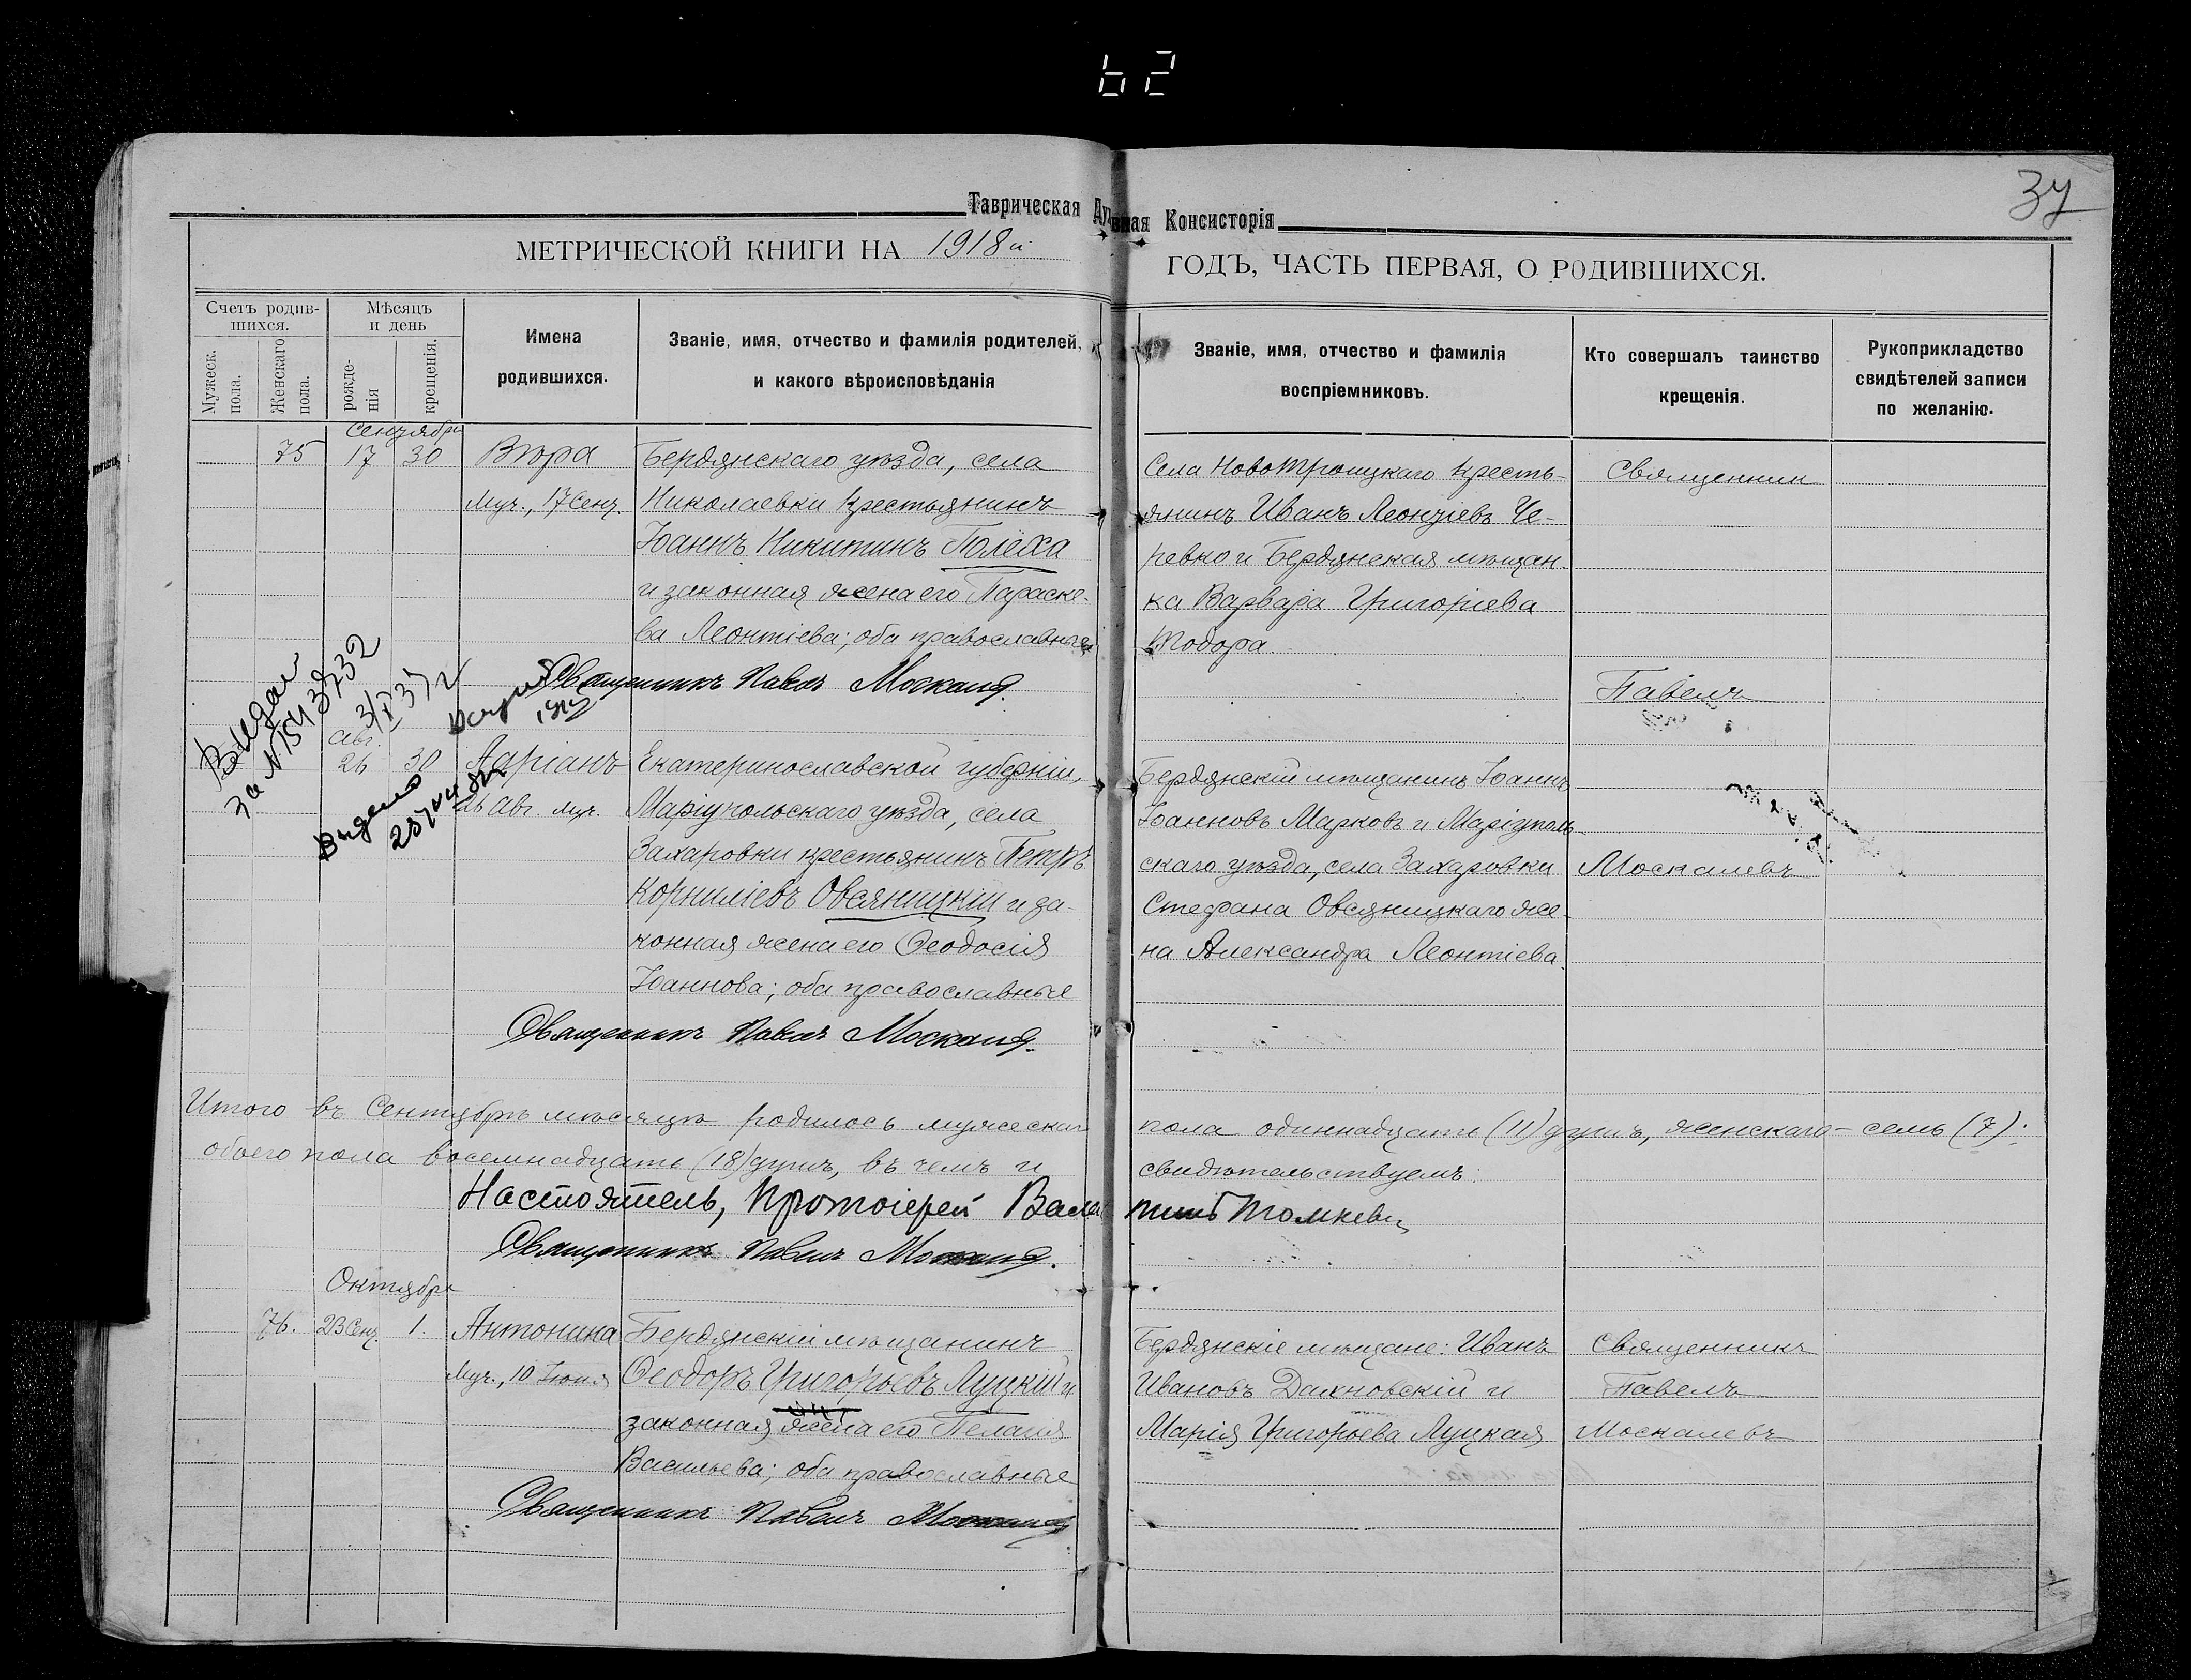 62
37
Таврическая Духовная Консисторія
МЕТРИЧЕСКОЙ КНИГИ НА 1918й ГОДЪ, ЧАСТЬ ПЕРВАЯ, О РОДИВШИХСЯ.
Счетъ родив-
шихся.
Мужеск.
пола.
Женскаго
пола.
Мѣсяцъ
и день
рожде-
нія
крещенія.
Имена
родившихся.
Званіе, имя, отчество и фамилія родителей,
и какого вѣроисповѣданія
Званіе, имя, отчество и фамилія
воспріемниковъ.
Кто совершалъ таинство
крещенія.
Рукоприкладство
свидѣтелей записи
по желанію.
Сентября
75 17 30
Вѣра
Муч., 17 Сент.
Бердянскаго уѣзда, села
Николаевки крестьянинъ
Іоаннъ Никитинъ Полёха
и законная жена его Параске-
ва Леонтіева; оба православные
Села НовоТроицкаго кресть-
янинъ Иванъ Леонтіевъ Че-
ревко и Бердянская мѣщан-
ка Варвара Григоріева
Тодора.
Священник
Павелъ
Москалевъ
Священникъ Павелъ Москалев.
Выдан
за N 1543732
3/X 37 г
Видано
Авг.
26 30
Адріанъ
26 Авг. муч.
Екатеринославской губерніи,
Маріупольскаго уѣзда, села
Захаровки крестьянинъ Петръ
Корниліевъ Овсяницкій и за-
конная жена его Ѳеодосія
Іоаннова; оба православные
Бердянскій мѣщанинъ Іоаннъ
Іоанновъ Марковъ и Маріуполь-
скаго уѣзда, села Захаровки
Стефана Овсяницкаго же-
на Александра Леонтіева.
Священникъ Павелъ Москалев.
Итого въ Сентябрѣ мѣсяцѣ родилось мужескаго пола одиннадцать (11) душъ, женскаго – семь (7);
обоего пола восемнадцать (18) душъ, въ чемъ и свидѣтельствуемъ:
Настоятель, Протоіерей Валентинъ Томкевич
Священникъ Павелъ Москалев.
Октября
76. 23 Сент. 1.
Антонина
Муч., 10 Іюня
Бердянскій мѣщанинъ
Ѳеодоръ Григорьевъ Луцкій и
законная жена его Пелагія
Васильева; оба православные
Бердянскіе мѣщане: Иванъ
Ивановъ Дахновскій и
Марія Григорьева Луцкая
Священникъ
Павелъ
Москалевъ
Священникъ Павелъ Москалев